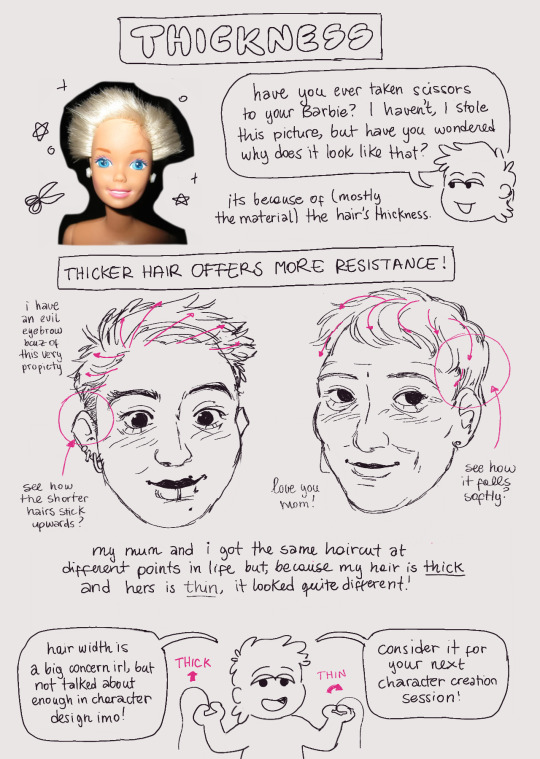 THICKNESS
have you ever taken scissors
to your Barbie? I haven't, I stole
this picture, but have you wondered
why does it look like that?
its because of (mostly
the material) the hair's thickness.
THICKER HAIR OFFERS MORE RESISTANCE!
i have
an evil
eyebrow
bcuz of
this very
propicty
see how
the shorter
hairs stick
upwards?
love you
mom!
see how
it falls
softly?
my mum and i got the same haircut at
different points in life but, because my hair is thick
and hers is thin, it looked quite different!
hair width is
a big concern irl, but
not talked about
enough in character
design imo!
THICK
THIN
consider it for
your next
character creation
session!